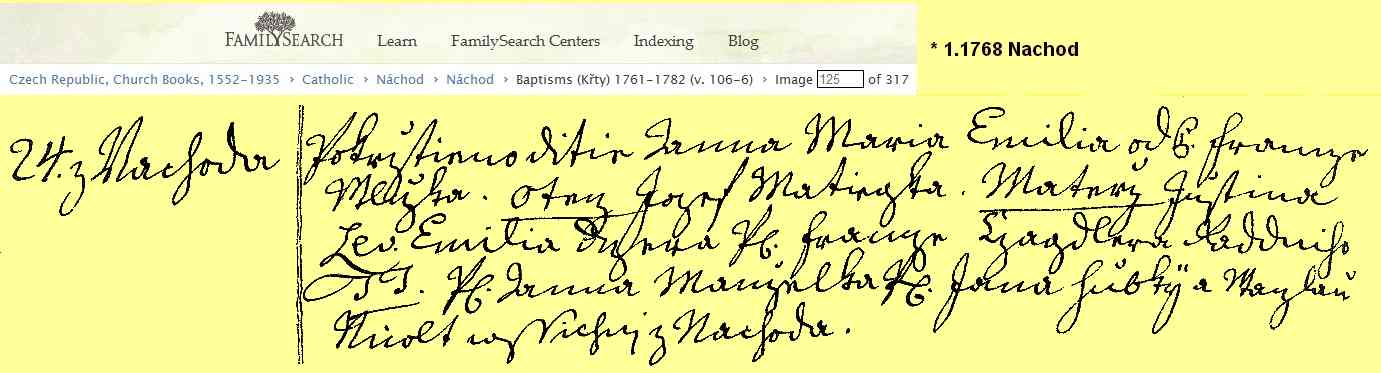 FAMILYSEARCH Learn FamilySearch Centers Indexing Blog
* 1.1768 Nachod
Czech Republic, Church Books, 1552-1935 › Catholic › Náchod › Náchod › Baptisms (Křty) 1761-1782 (v. 106-6) › Image 125 of 317
24. z Nachoda
Pokrżtieno ditie Anna Maria Emilia od P. Francze
Otecz Jozef Matiegka. Materz Justina
Lev. Emilia Dczera P. Francze Raddniho
P. Anna Manzelka P. Jana Hubky a Waczlau
Nicolt wssichni z Nachoda.